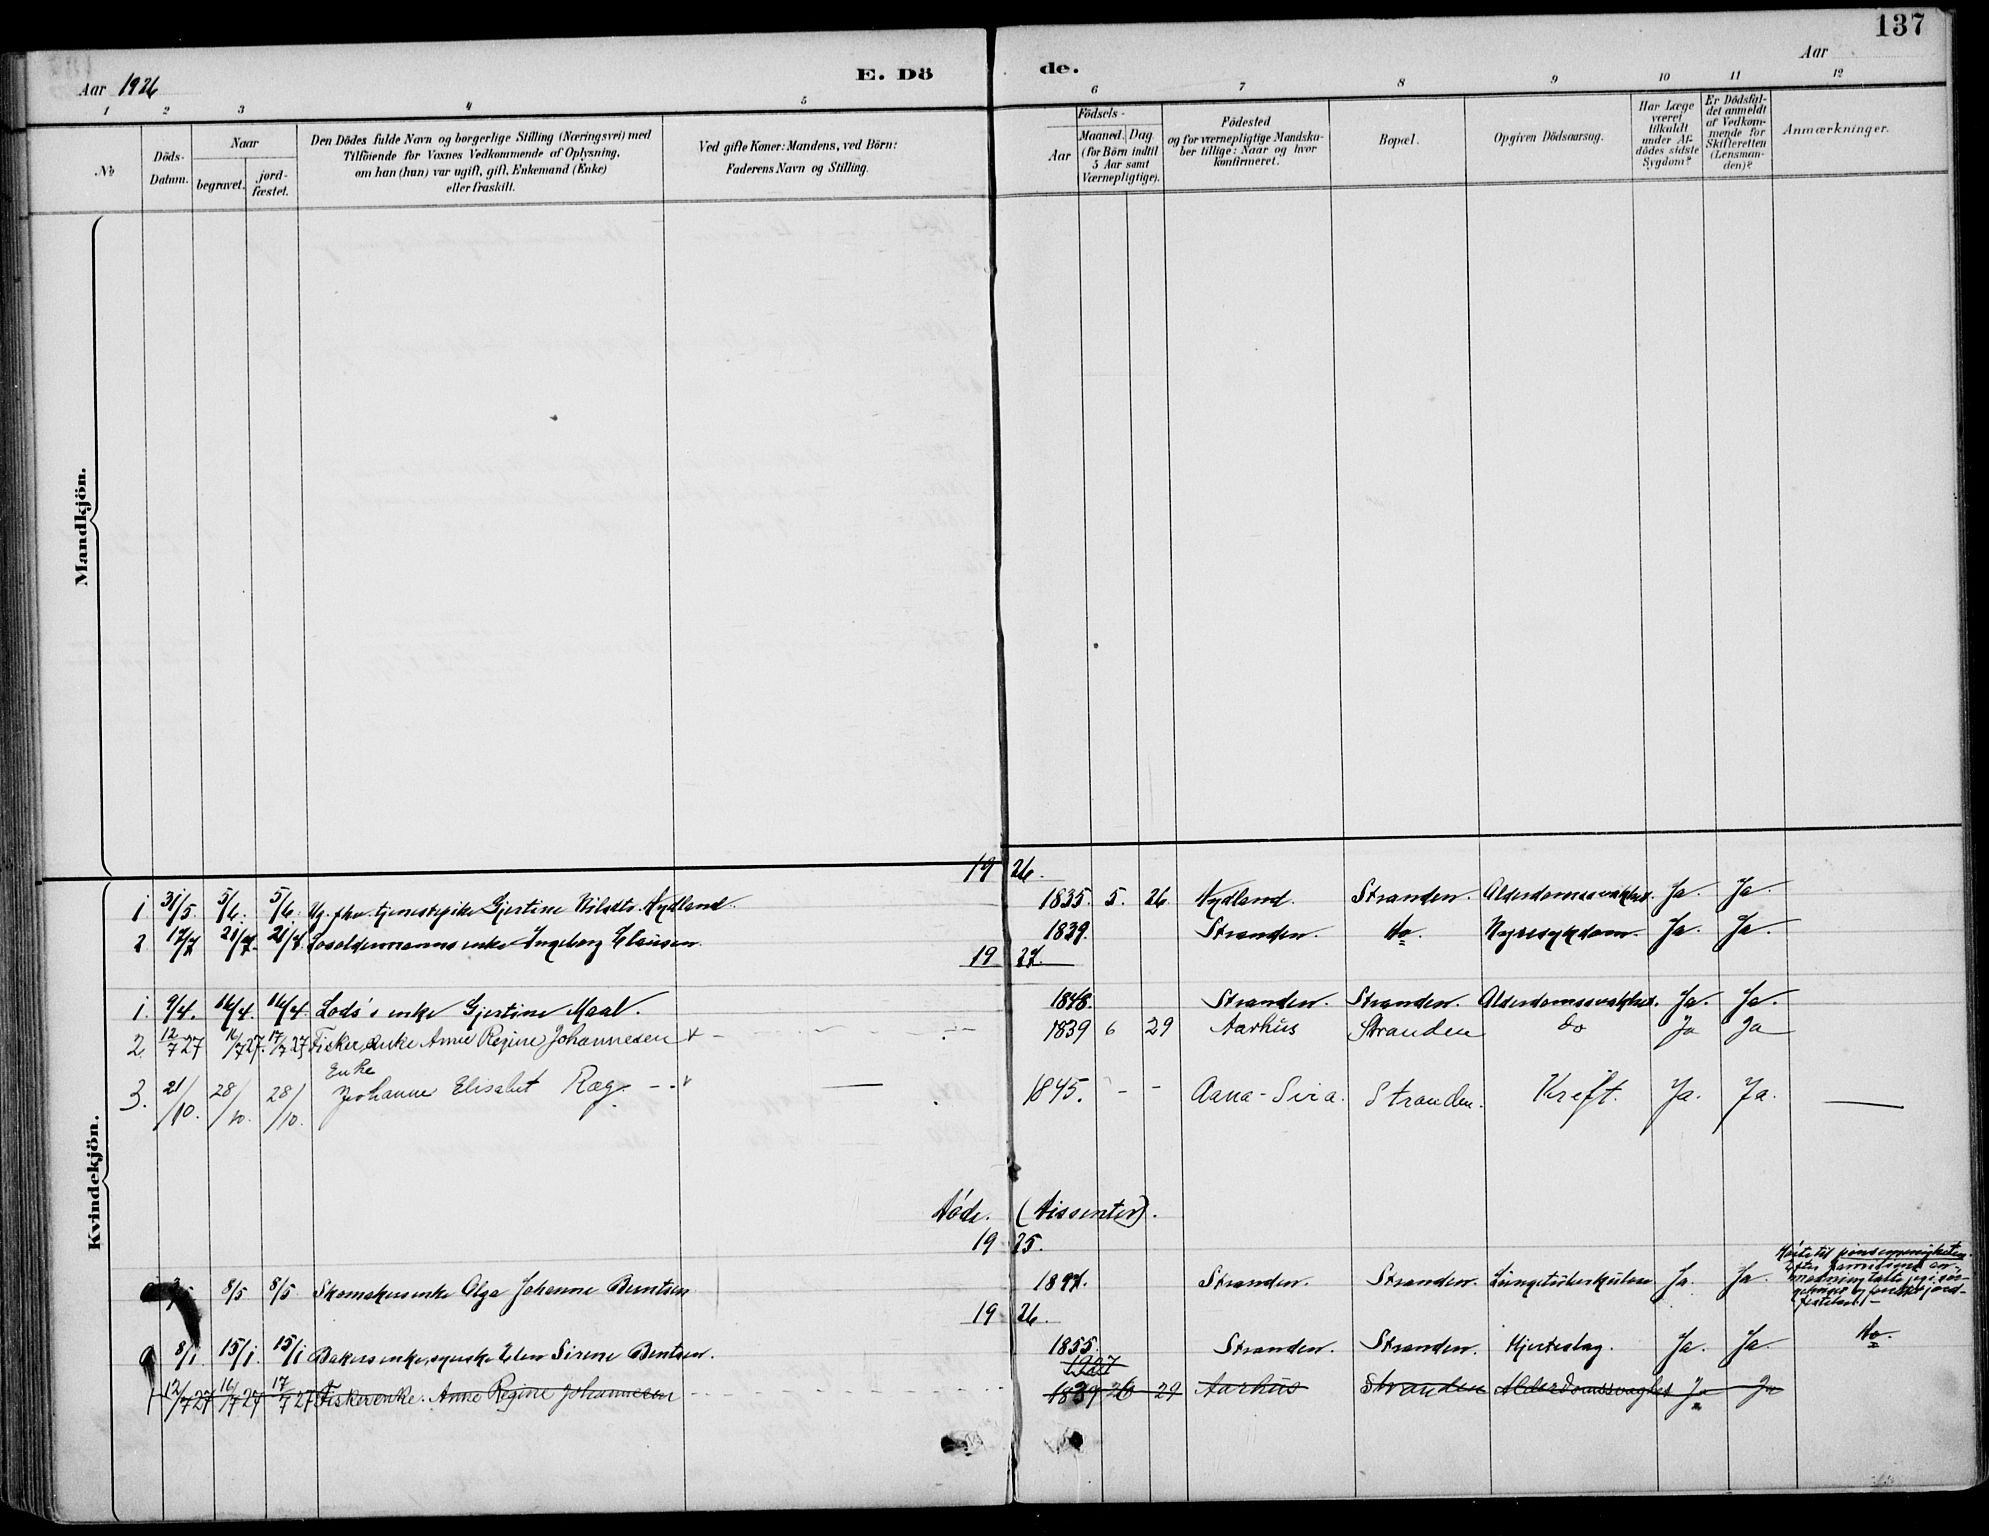 137
Aar 1926
E. Dö
de.
Aar
1 2 3 4 5 6 7 8 9 10 11 12
No
Döds-
Datum.
Naar
begravet.
jord-
fæstet.
Den Dödes fulde Navn og borgerlige Stilling (Næringsvei) med
Tilföiende for Voxnes Vedkommende af Oplysning,
om han (hun) var ugift, gift, Enkemand (Enke)
eller fraskilt.
Ved gifte Koner: Mandens, ved Börn:
Faderens Navn og Stilling.
Födsels-
Aar
Maaned. Dag.
(for Börn indtil
5 Aar samt
Værnepligtige).
Födested
og for værnepligtige Mandska-
ber tillige: Naar og hvor
konfirmeret.
Bopæl.
Opgiven Dödsaarsag.
Har Læge
været
tilkaldt
under Af-
dödes sidste
Sygdom?
Er Dödsfal-
det anmeldt
af Vedkom-
mende for
Skifteretten
(Lensman-
den)?
Anmærkninger.
Mandkjön.
Kvindekjön.
19 26.
1 31/5 5/6. 5/6. Ug. fhv. tjenestepike Gjertine Nydland. 1835. 5. 26 Nydland. Stranden. Alderdomssvakhet. Ja. Ja.
2 17/7 21/7. 21/7. Losoldermannsenke Ingeborg Clausen. 1839. Stranden. do. Nyresykdom. Ja. Ja.
19 27.
1. 9/4. 16/4. 16/4 Lods's enke Gjertine Maal. 1848. Stranden. Stranden. Alderdomssvakhet. Ja. Ja.
2. 12/7 27 16/7 27. 17/7 27 Fiskerenke Anne Regine Johannesen 1839 6 29 Aarhus Stranden do Ja Ja
Enke
3. 21/10. 28/10. 28/10. Johanne Elisabet Ræg 1845. - - Aana-Sira. Stranden. Kreft. Ja. Ja.
Döde. (Dissenter).
19 25.
8/5 8/5 Skomakersenke Olga Johanne Berntsen 1897. Stranden. Stranden. Lungetuberkulose Ja. Ja.
Hörte til pinsemenigheten.
19 26.
8/1. 15/1. 15/1 Bakersenke, Elen Sirene Bentsen. 1855. Stranden. Stranden. Hjerteslag. Ja. Ja. do.
1927
12/7 27 16/7 27 17/7 27 Fiskerenke. Anne Regine Johannesen 1839 6 29 Aarhus Stranden Alderdomssvaghet Ja Ja